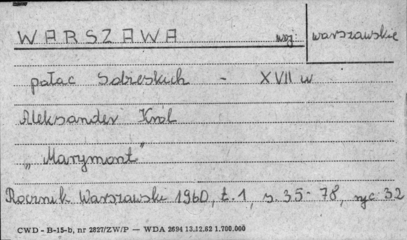 WARSZAWA woj. warszawskie
pałac Sobieskich - XVII w
Aleksander Król
„Marymont"
Rocznik Warszawski 1960, t. 1, s. 35-78, ryc 32
CWD - B-15-b, nr 2827/ZW/P — WDA 2694 13.12.62 1.700.000